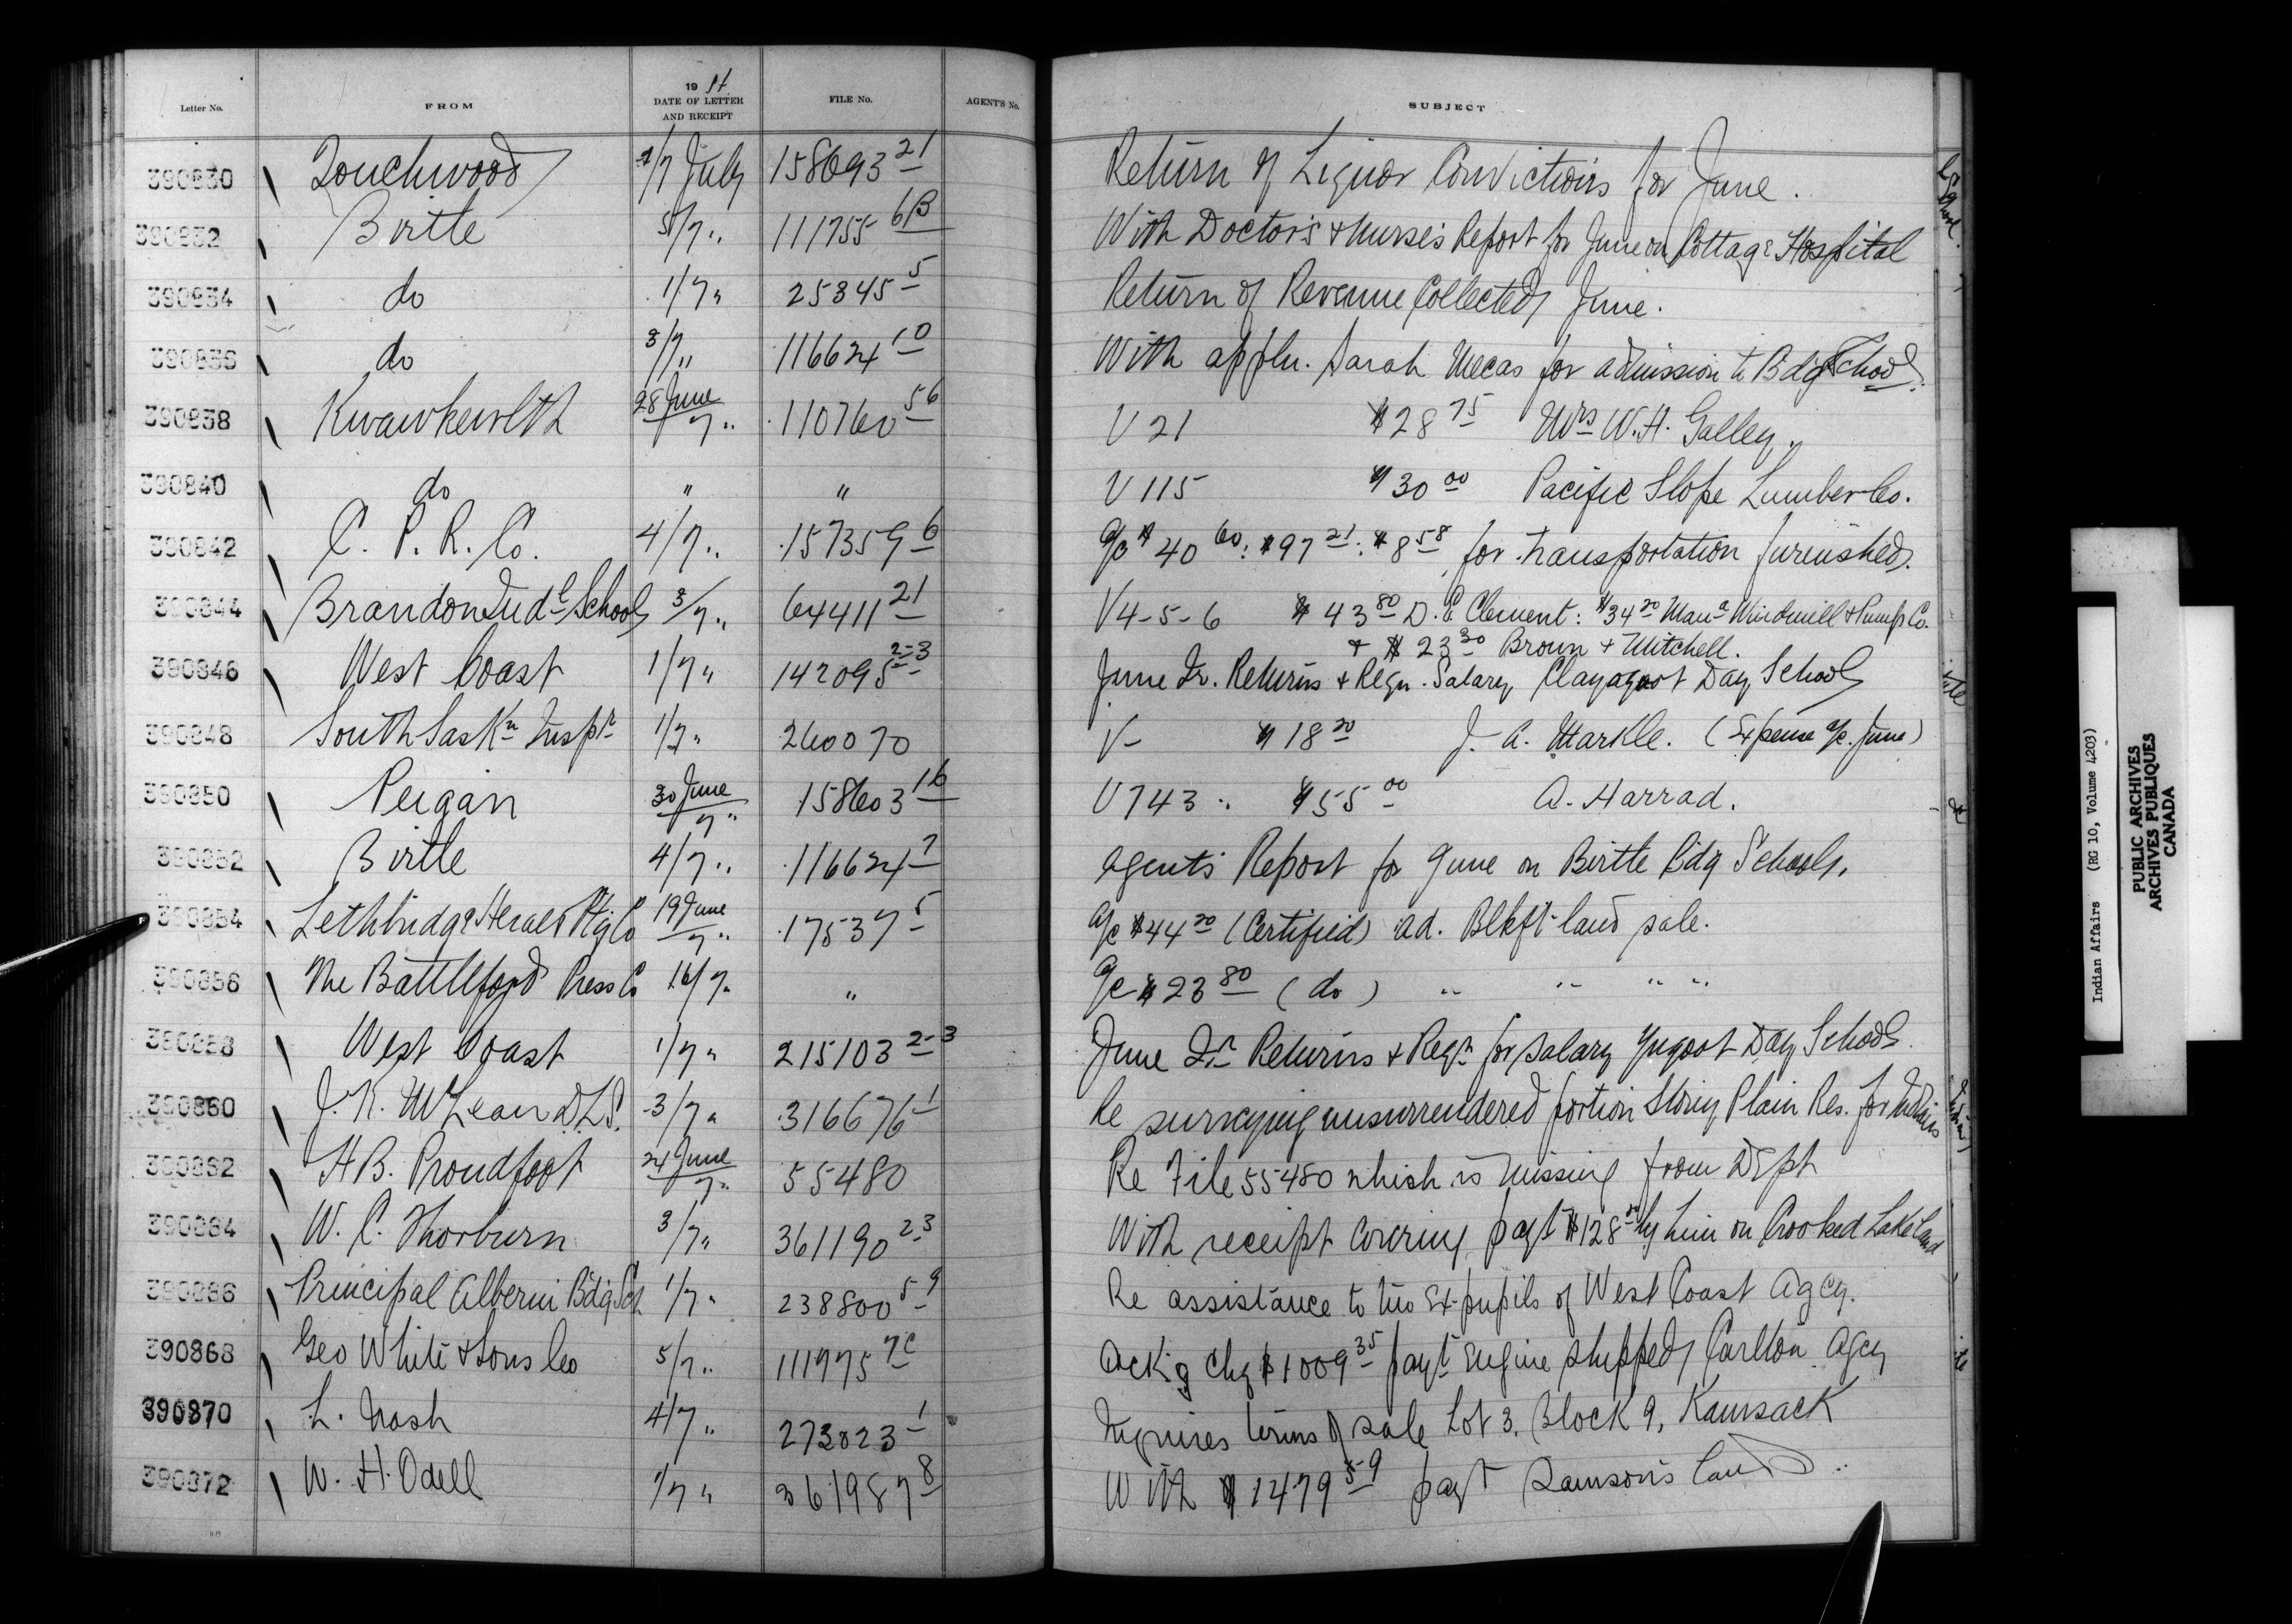 Letter No. FROM 19 11 DATE OF LETTER AND RECEIPT FILE No. AGENT'S No. SUBJECT
390830 Touchwood 1/7 July 158693 21 Return of Liquor Convictions for June.
390832 Birtle 5/7 " 111755 6B With Doctor's & Nurse's Report for June on Cottage Hospital
390834 do 1/7 " 25345 5 Return of Revenue Collected June.
390836 do 3/7 " 116624 10 With appln. Sarah for admission to Bdg School.
390838 Kwawkewlth 28 June /7 " 110760 56 V 21 $28 75 Mrs W. H. Galley.
390840 do " " V 115 $30 00 Pacific Slope Lumber Co.
390842 C. P. R. Co. 4/7 " 157359 6 a/c $40 60: $97 21: $8 58 for transportation furnished.
390844 Brandon Indl School 3/7 " 64411 21 V4-5-6 $43 80 D. E Clement: $34 20 Mana Windmill & Pump Co.
& $23 30 Brown & Mitchell.
390846 West Coast 1/7 " 142095 2-3 June Qr. Returns & Reqn. Salary Clayoquot Day School
390848 South Saskn Inspr 1/7 " 260070 V- $18 20 J. A. Markle. (Expense a/c. June)
390850 Peigan 30 June /7 " 158603 16 V 743 : $55 00 A. Harrad.
390852 Birtle 4/7 " 116624 7 Agents Report for June on Birtle Bdg School.
390854 Lethbridge Herald Ptg Co 19 June /7 " 17537 5 a/c $44 20 (Certified) ad. Blkft land sale.
390856 The Battleford Press Co 16/7 " " a/c $23 80 (do) " " " "
390858 West Coast 1/7 " 215103 2-3 June Qr Returns & Reqn for salary Day School.
390860 J. K. McLean D.L.S. 3/7 " 316676 1 Re surveying unsurrendered portion Stony Plain Res. for Indians
390862 H B. Proudfoot 24 June /7 " 55480 Re File 55480 which is missing from Dept
390864 W. C. Thorburn 3/7 " 361190 2-3 With receipt covering payt $128 by him on Crooked Lake land
390866 Principal Alberni Bdg Sch 1/7 " 238800 5-9 Re assistance to two Ex-pupils of West Coast Agcy.
390868 Geo White & Sons Co 5/7 " 111775 7C Ackg Chq $1009 35 payt Engine shipped Carlton Agcy
390870 L. Nash 4/7 " 273823 1 Inquires terms of sale Lot 3, Block 9, Kamsack
390872 W. H. Odell 1/7 " 361987 8 With $1479 59 payt land.
Indian Affairs (RG 10, Volume 4203)
PUBLIC ARCHIVES
ARCHIVES PUBLIQUES
CANADA